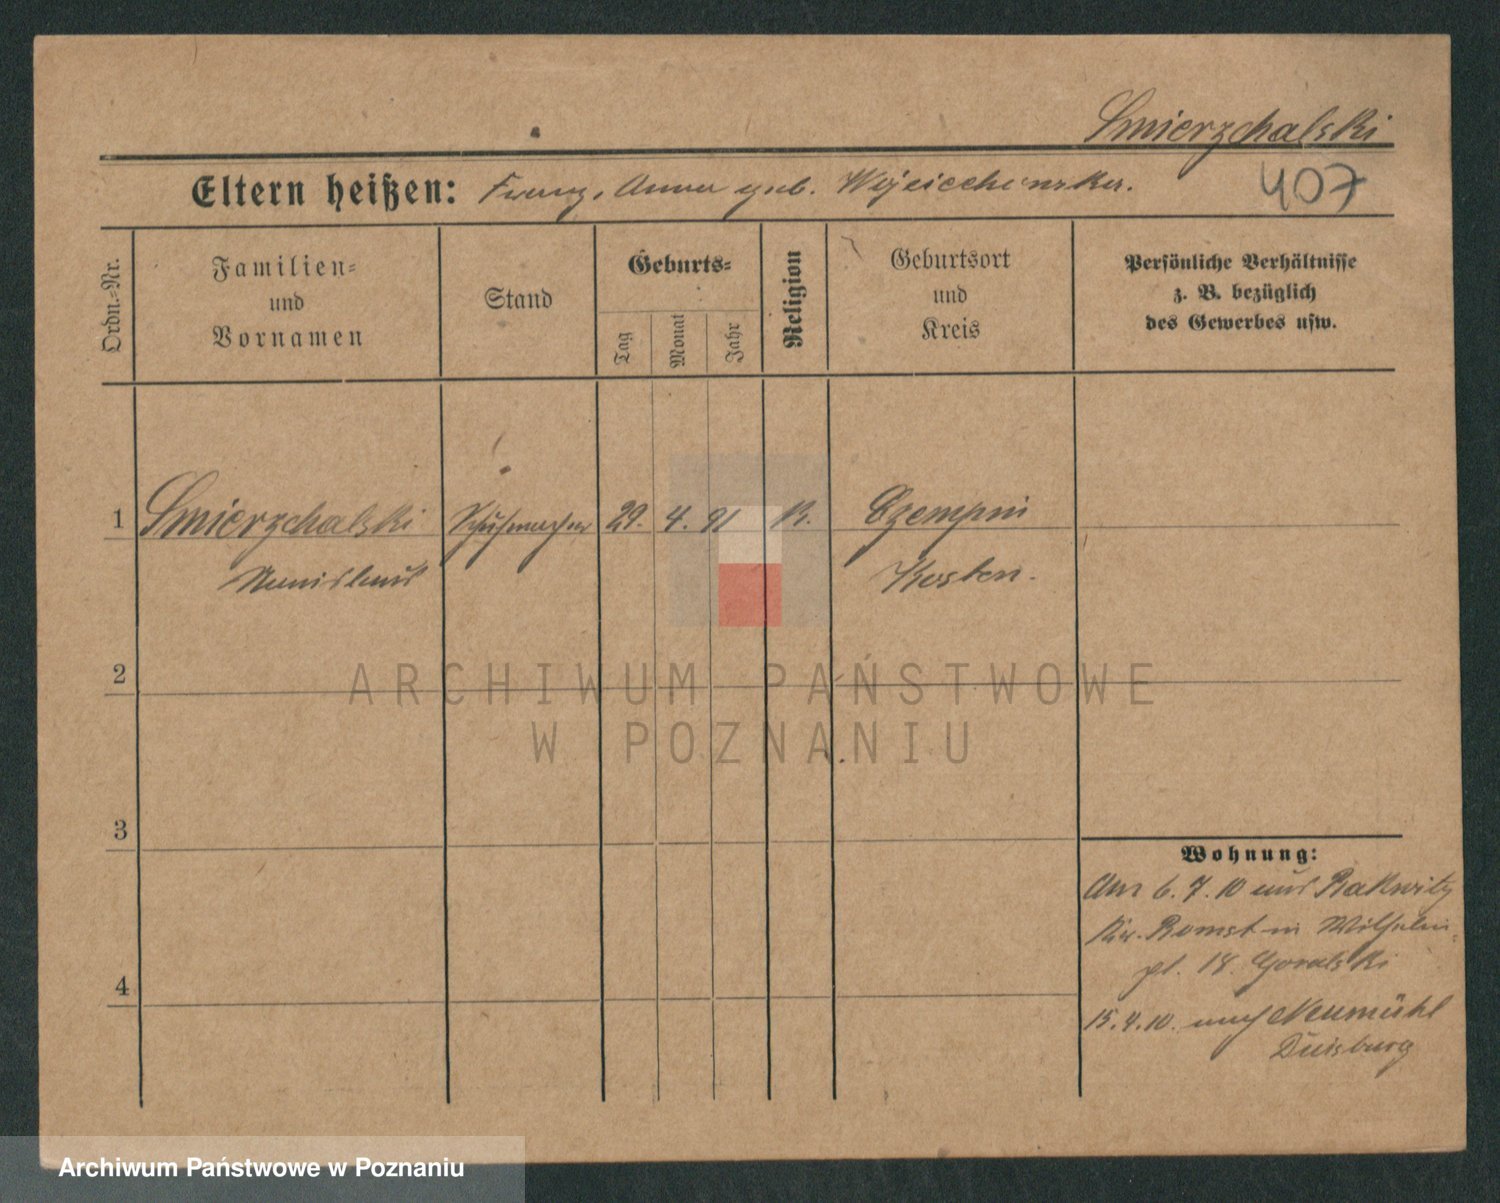 Smierzchalski
Eltern heißen: Franz, Anna geb.
407
Ordn.=Nr.
Familien=
und
Vornamen
Stand
Geburts=
Tag
Monat
Jahr
Religion
Geburtsort
und
Kreis
Persönliche Verhältnisse
z. B. bezüglich
des Gewerbes usw.
1 Smierzchalski Schuhmacher 29. 4. 91 K. Czempin
Kosten.
2
ARCHIWUM PAŃSTWOWE
W POZNANIU
3
4
Wohnung:
6.7.10 aus Rakwitz
Kr. Bomst in Wilhelm
pl. 18. Goralski
15.4.10. nach Neumühl
Duisburg
Archiwum Państwowe w Poznaniu